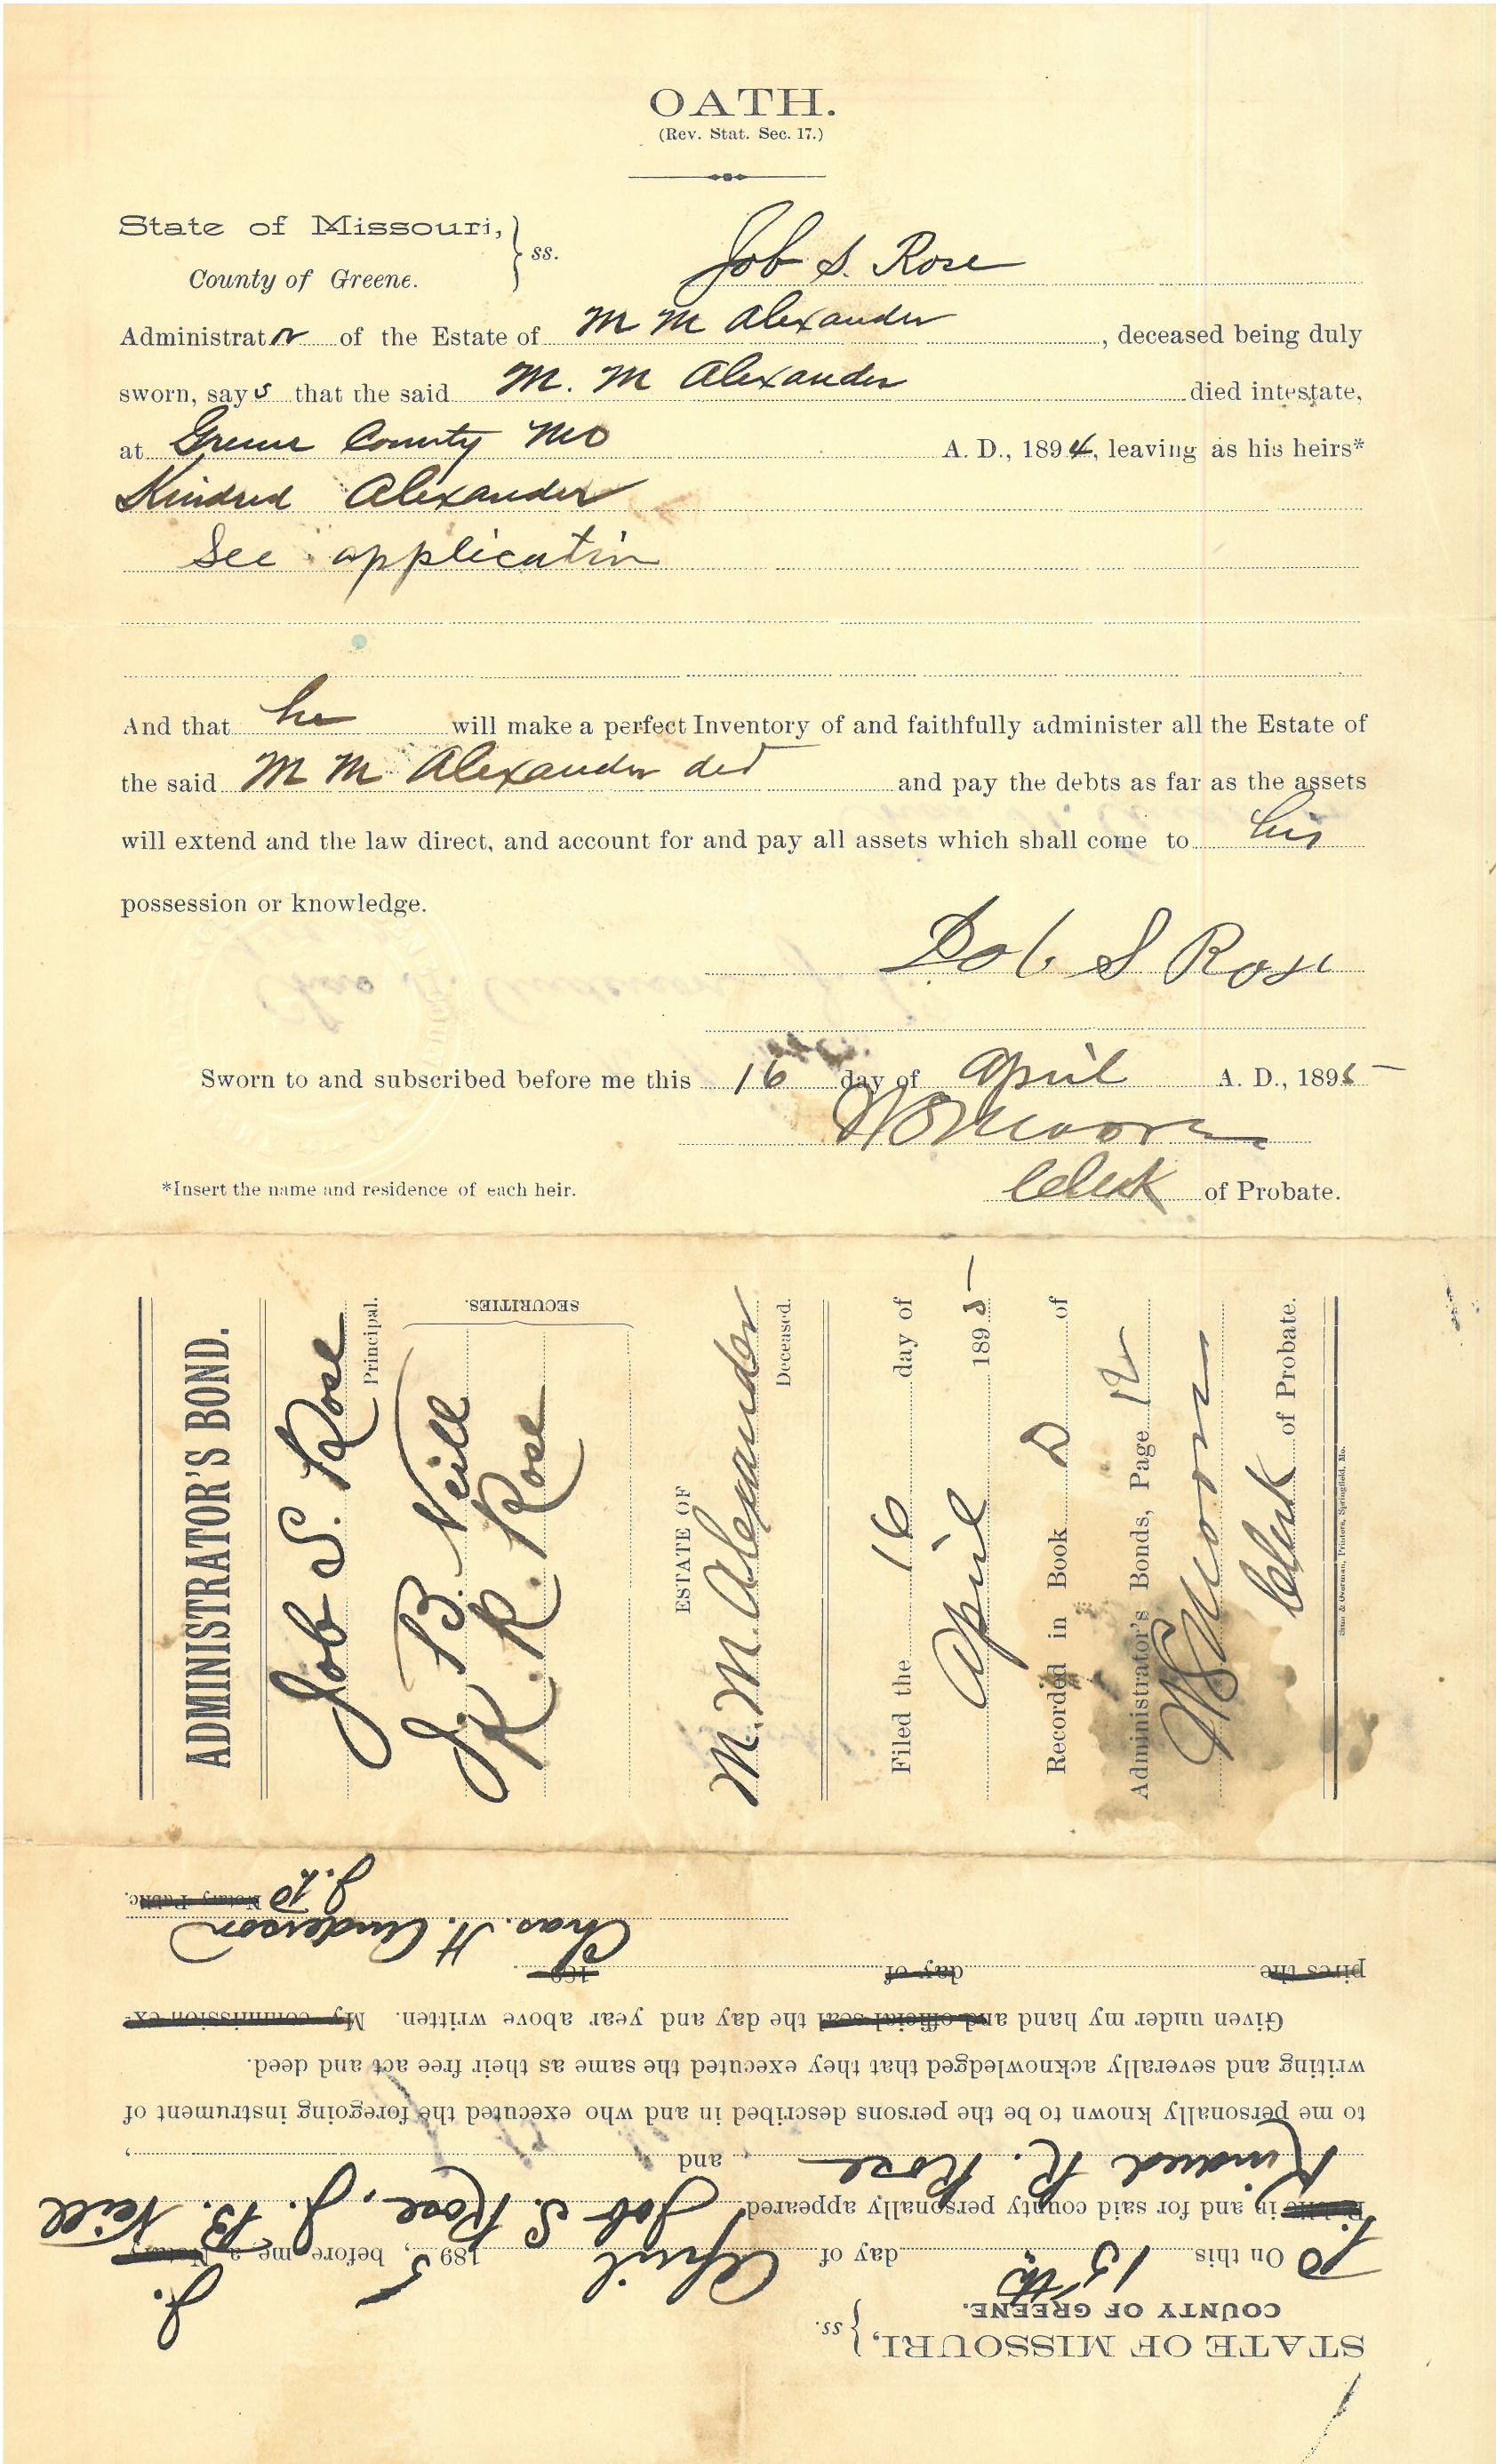 OATH.
(Rev. Stat. Sec. 17.)
State of Missouri, } ss.
County of Greene.
Job S. Rose
Administrator of the Estate of M M Alexander, deceased being duly
sworn, says that the said M. M Alexander died intestate,
at Greene County Mo A. D., 1894, leaving as his heirs*
Kindred Alexander
See application
And that he will make a perfect Inventory of and faithfully administer all the Estate of
the said M M Alexander decd and pay the debts as far as the assets
will extend and the law direct, and account for and pay all assets which shall come to his
possession or knowledge.
Job S Rose
Sworn to and subscribed before me this 16 day of April A. D., 1895
Moore
*Insert the name and residence of each heir.
Clerk of Probate.
ADMINISTRATOR'S BOND.
Job S. Rose
Principal.
J. B. Neill
K. R. Rose
SECURITIES.
ESTATE OF
M. M. Alexander
Deceased.
Filed the 16 day of
April 1895
Recorded in Book D of
Administrator's Bonds, Page 12
Moore
Clerk of Probate.
Printers, Springfield, Mo.
STATE OF MISSOURI, } ss.
COUNTY OF GREENE.
On this 15th day of April 1895, before me a Notary J.
P. Public in and for said county personally appeared Job S. Rose, J. B. Neill
Kindred R. Rose and ,
to me personally known to be the persons described in and who executed the foregoing instrument of
writing and severally acknowledged that they executed the same as their free act and deed.
Given under my hand and official seal the day and year above written. My commission ex-
pires the day of 189
Chas. H. Anderson
Notary Public. J.P.